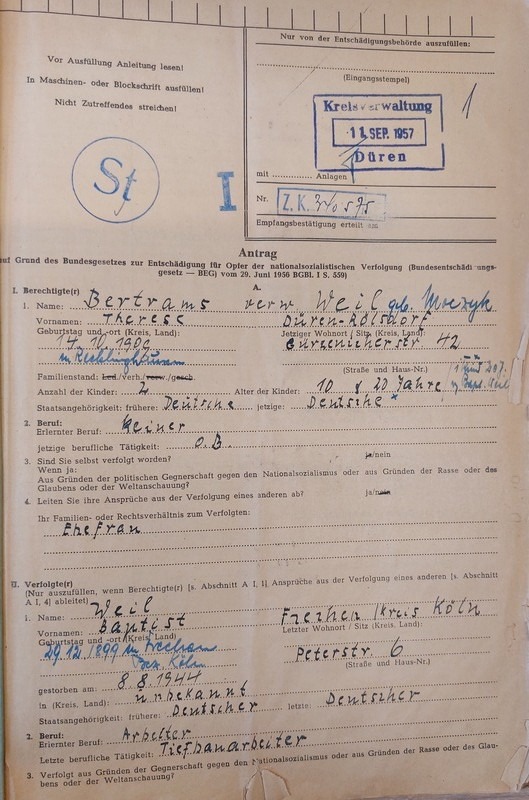 Vor Ausfüllung Anleitung lesen!
In Maschinen- oder Blockschrift ausfüllen!
Nicht Zutreffendes streichen!
St
I
Nur von der Entschädigungsbehörde auszufüllen:
(Eingangsstempel)
1
Kreisverwaltung
11. SEP. 1957
Düren
mit Anlagen
Nr. Z.K.
Empfangsbestätigung erteilt am
Antrag
auf Grund des Bundesgesetzes zur Entschädigung für Opfer der nationalsozialistischen Verfolgung (Bundesentschädigungs-
gesetz — BEG) vom 29. Juni 1956 BGBl. I S. 559)
A.
I. Berechtigte(r)
1. Name: Bertrams verw. Weil geb.
Vornamen: Therese Düren-Rölsdorf
Geburtstag und -ort (Kreis, Land) Jetziger Wohnort / Sitz (Kreis, Land):
14. 11. Gürzenicherstr 42
in Recklinghausen (Straße und Haus-Nr.)
Familienstand: Led./verh./verw./gesch.
Anzahl der Kinder: 2 Alter der Kinder: 10 & 20 Jahre
Staatsangehörigkeit: frühere: Deutsche jetzige: Deutsche
2. Beruf:
Erlernter Beruf: Keiner
jetzige berufliche Tätigkeit: O.B.
3. Sind Sie selbst verfolgt worden? ja/nein
Wenn ja:
Aus Gründen der politischen Gegnerschaft gegen den Nationalsozialismus oder aus Gründen der Rasse oder des
Glaubens oder der Weltanschauung?
4. Leiten Sie Ihre Ansprüche aus der Verfolgung eines anderen ab? ja/nein
Ihr Familien- oder Rechtsverhältnis zum Verfolgten:
Ehefrau
II. Verfolgte(r)
(Nur auszufüllen, wenn Berechtigte(r) [s. Abschnitt A I, 1] Ansprüche aus der Verfolgung eines anderen [s. Abschnitt
A I, 4] ableitet)
1. Name: Weil Frechen / Kreis Köln
Vornamen: Baptist Letzter Wohnort / Sitz (Kreis, Land):
Geburtstag und -ort (Kreis, Land)
29.12.1899 in Frechen Peterstr 6
Bez. Köln (Straße und Haus-Nr.)
gestorben am: 8 8. 1944
in (Kreis, Land): unbekannt
Staatsangehörigkeit: frühere: Deutscher letzte: Deutscher
2. Beruf:
Erlernter Beruf: Arbeiter
Letzte berufliche Tätigkeit: Tiefbauarbeiter
3. Verfolgt aus Gründen der Gegnerschaft gegen den Nationalsozialismus oder aus Gründen der Rasse oder des Glau-
bens oder der Weltanschauung?